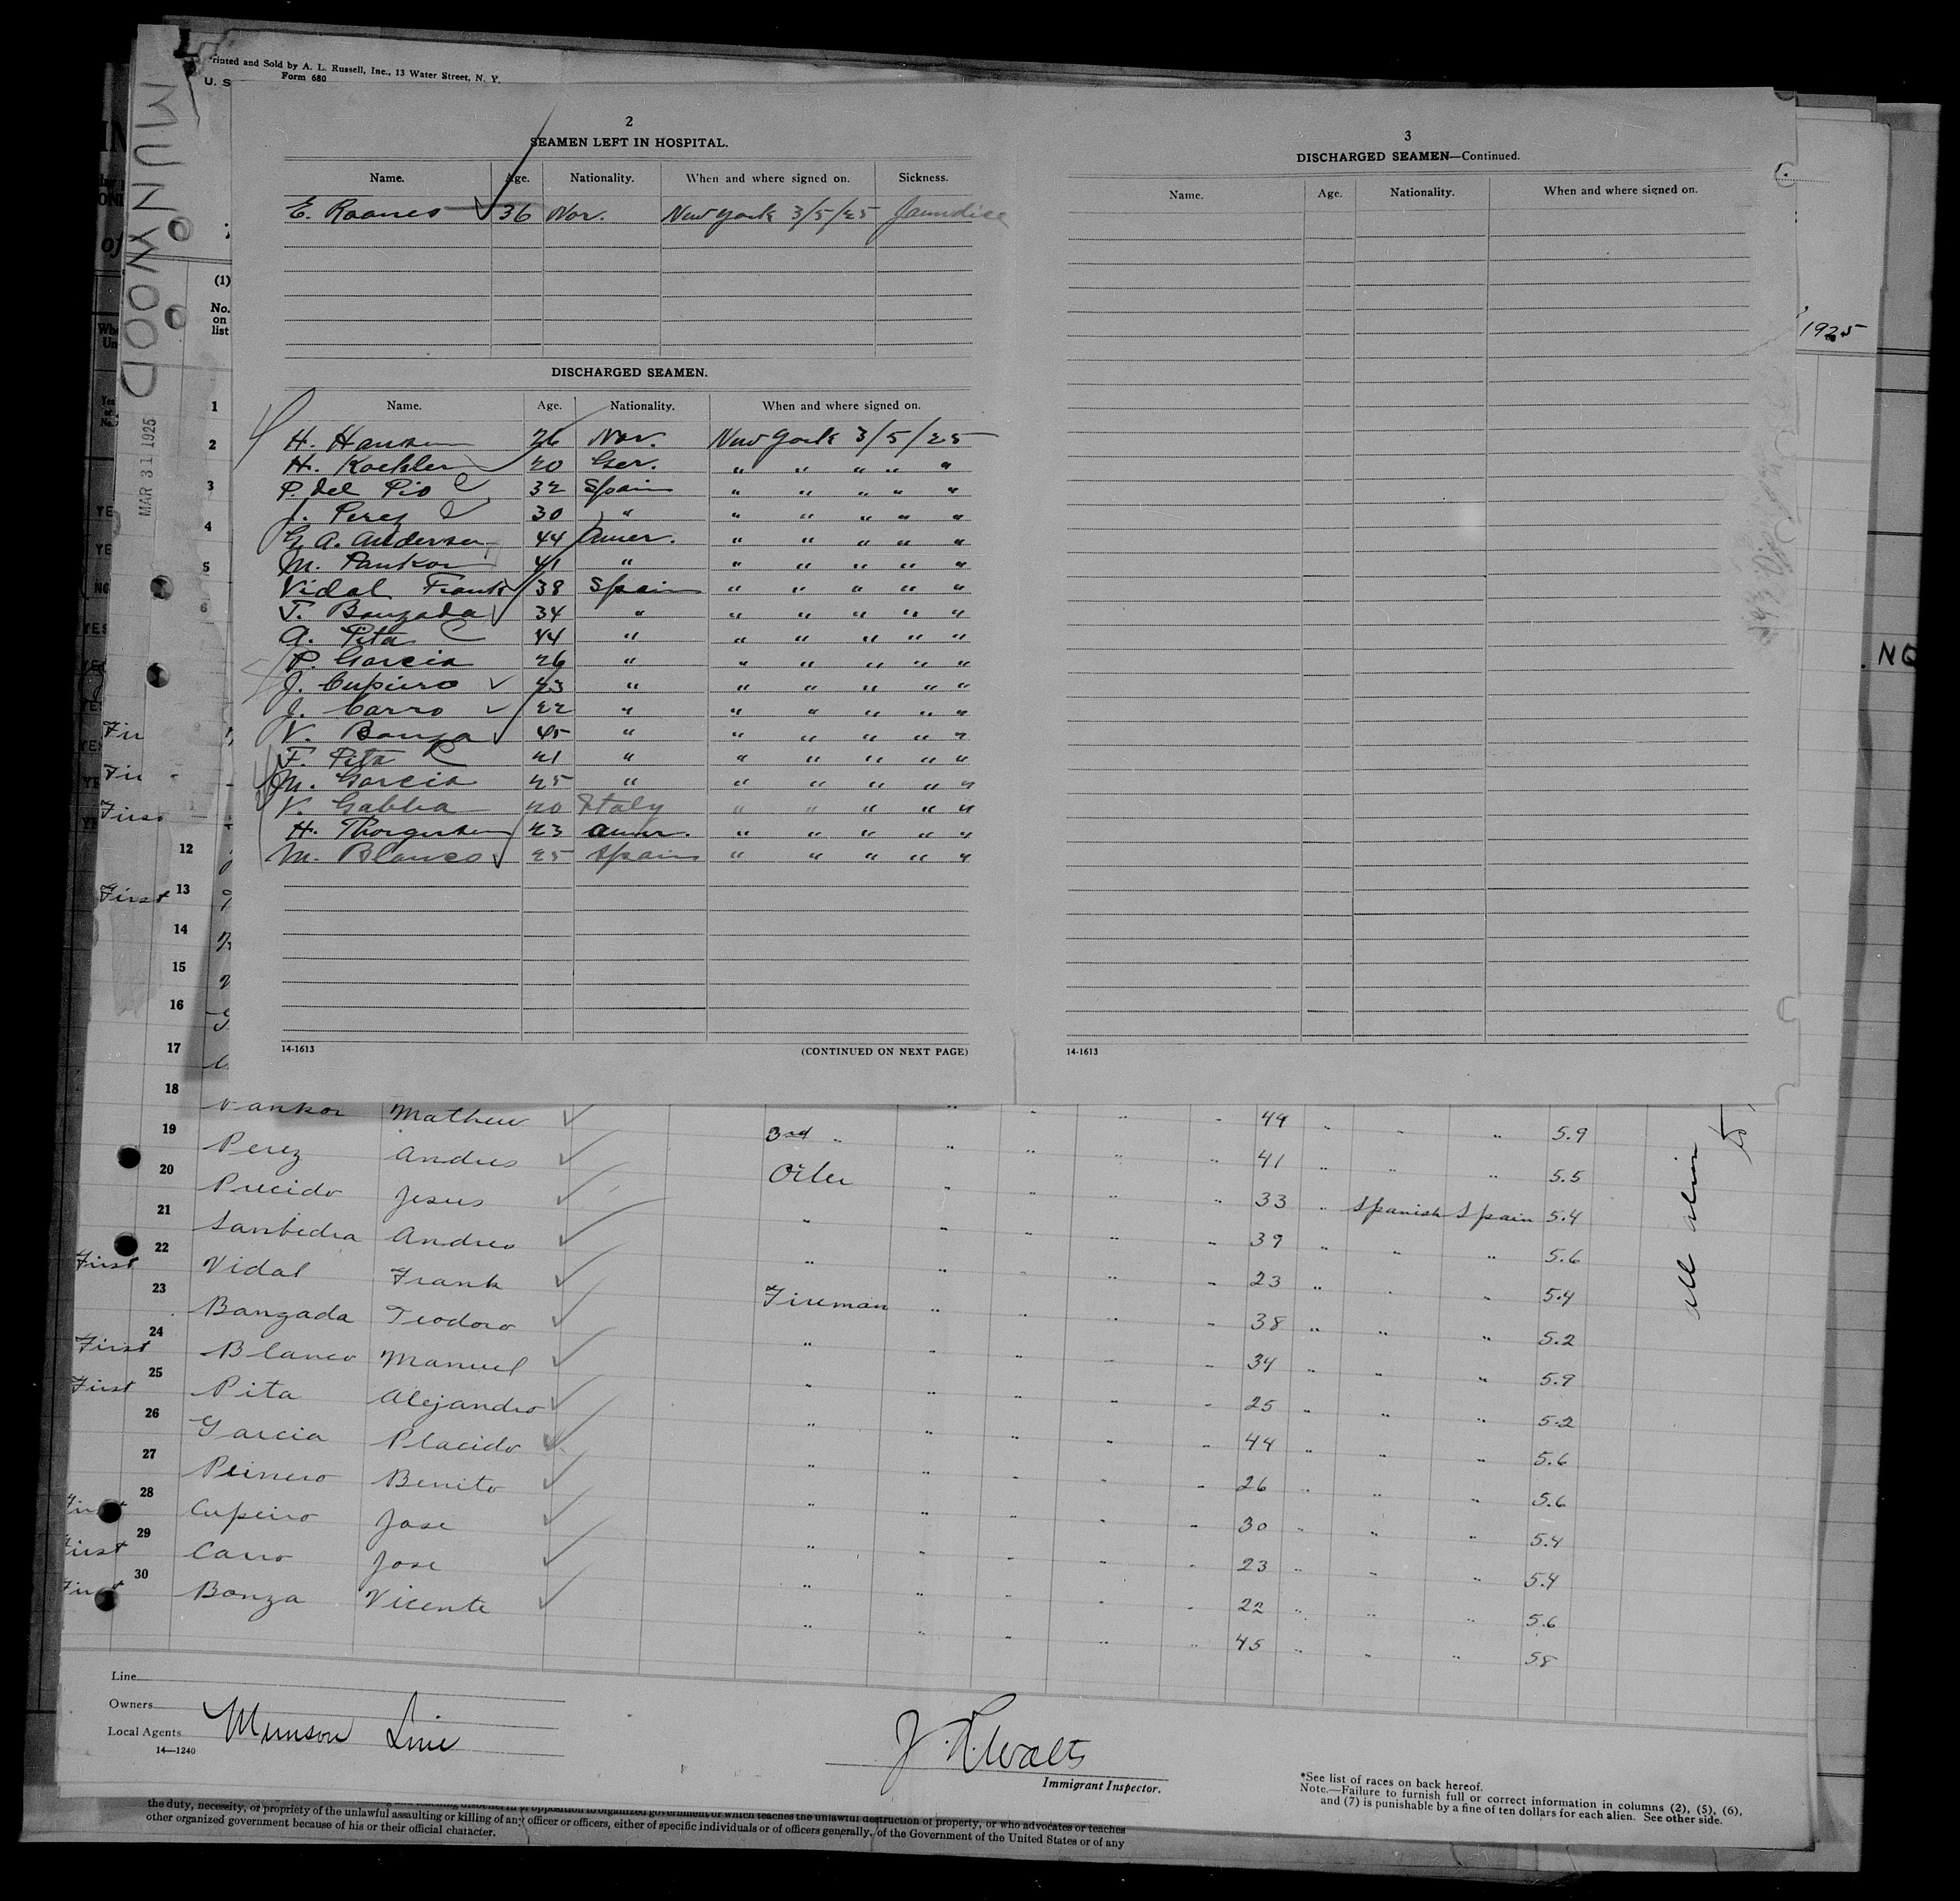 Printed and Sold by A. L. Russell, Inc., 13 Water Street, N. Y.
U. S. Form 680
MUNWOOD
MAR 31 1925
2
SEAMEN LEFT IN HOSPITAL.
Name. Age. Nationality. When and where signed on. Sickness.
E. Roanes 36 Nor. New York 3/5/25 Jaundice
DISCHARGED SEAMEN.
Name. Age. Nationality. When and where signed on.
H. Hansen 26 Nor. New York 3/5/25
H. Koehler 20 Ger. " " " " "
P. del Pio 32 Spain " " " " "
J. Perez 30 " " " " " "
G. A. Andersen 44 Amer. " " " " "
M. Pankov 41 " " " " " "
Vidal Frank 38 Spain " " " " "
T. Bangada 34 " " " " " "
A. Pita 44 " " " " " "
P. Garcia 26 " " " " " "
J. Cupeiro 23 " " " " " "
J. Carro 22 " " " " " "
V. Bonza 45 " " " " " "
F. Pita 21 " " " " " "
M. Garcia 25 " " " " " "
V. Gabba 20 Italy " " " " "
H. Thorgersen 23 Amer. " " " " "
M. Blanco 25 Spain " " " " "
14-1613 (CONTINUED ON NEXT PAGE)
3
DISCHARGED SEAMEN—Continued.
Name. Age. Nationality. When and where signed on.
14-1613
1925
(1)
No. on list
1
2
3
4
5
6
12
First 13
14
15
16
17
18 Mathew 3rd " 49 5.9
19 Perez Andres Oiler 41 5.5
20 Precido Jesus " 33 " Spanish Spain 5.4
21 Andres " 39 " " " 5.6
First 22 Vidal Frank Fireman 23 " " " 5.4
23 Bangada Teodoro " 38 " " " 5.2
First 24 Blanco Manuel " 34 " " " 5.9
First 25 Pita Alejandro " 25 " " " 5.2
26 Garcia Placido " 44 " " " 5.6
27 Benito " 26 " " " 5.6
First 28 Cupeiro Jose " 30 " " " 5.4
First 29 Carro Jose " 23 " " " 5.4
First 30 Bonza Vicente " 22 " " " 5.6
45 " " " 58
all alien
Line
Owners
Local Agents Munson Line
14—1240
Immigrant Inspector.
*See list of races on back hereof.
Note.—Failure to furnish full or correct information in columns (2), (5), (6),
and (7) is punishable by a fine of ten dollars for each alien. See other side.
the duty, necessity, or propriety of the unlawful assaulting or killing of any officer or officers, either of specific individuals or of officers generally, of the Government of the United States or of any
other organized government because of his or their official character.